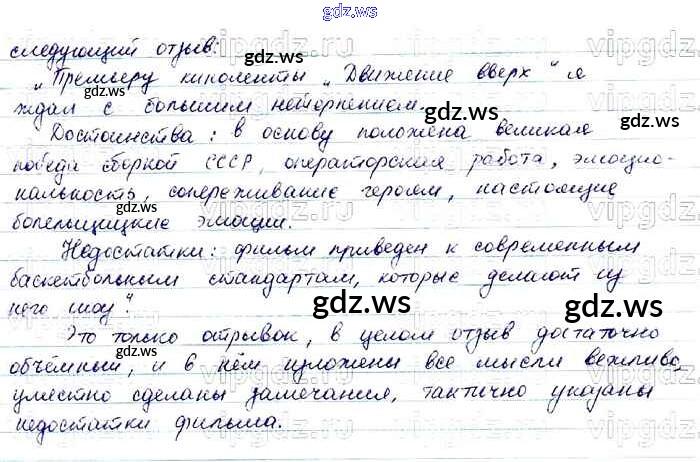 gdz.ws
следующий отзыв:
„Премьеру киноленты „Движение вверх“ я
ждал с большим нетерпением.
Достоинства: в основу положена великая
победа сборной СССР, операторская работа, эмоцио-
нальность, сопереживание героям, настоящие
болельщицкие эмоции.
Недостатки: фильм приведен к современным
баскетбольным стандартам, которые делают из
него шоу“.
Это только отрывок, в целом отзыв достаточно
объёмный, и в нём изложены все мысли вежливо,
уместно сделаны замечания, тактично указаны
недостатки фильма.
gdz.ws
gdz.ws
gdz.ws
gdz.ws
gdz.ws
gdz.ws
gdz.ws
gdz.ws
vipgdz.ru